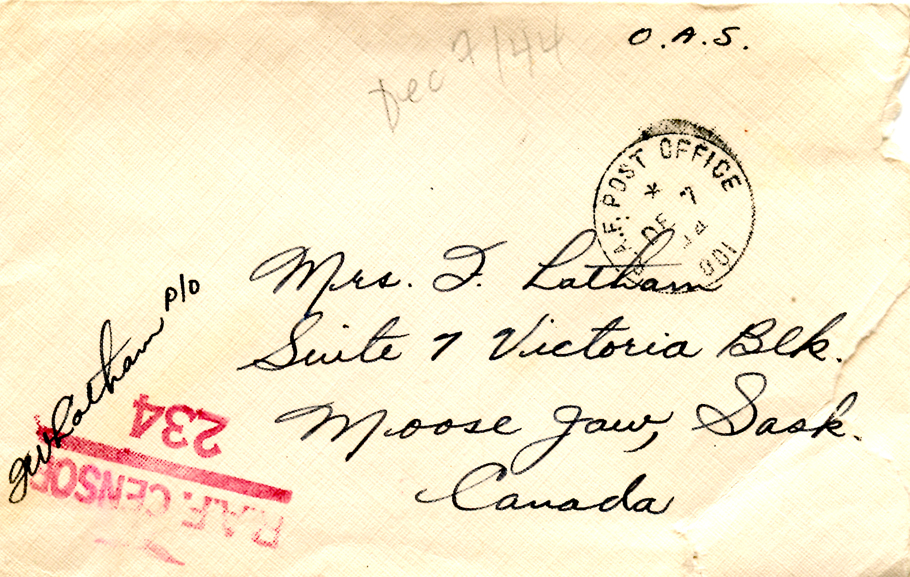 O.A.S.
Dec 7/44
R.A.F. POST OFFICE
* DE 7
44
001
Mrs. F. Latham
Suite 7 Victoria Blk.
Moose Jaw, Sask.
Canada
GW Latham P/O
R.A.F. CENSOR
234